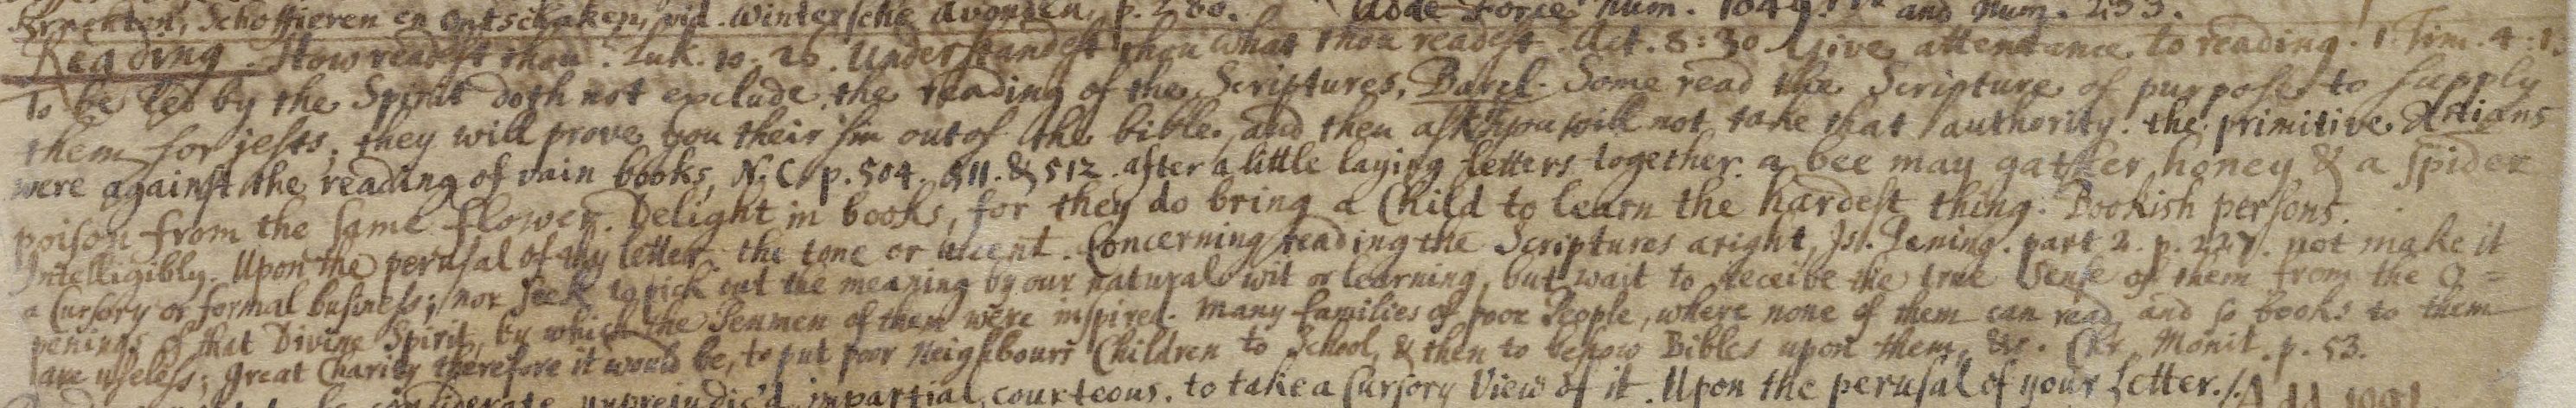 Schoffieren en ontschaken, vid. Wintersche Avonden, p. 280. Adde Force Num. and Num. 253.
Reading. How readest thou? Luk. 10. 26. Understandest thou what thou readest. Act. 8:30 Give attendance to reading. 1 Tim. 4:
To be led by the Spirit doth not exclude the reading of the Scriptures, Barcl. Some read the Scripture of purpose to supply
them for jests; they will prove you their sin out of the bible, and then ask you will not take that authority. the primitive
were against the reading of vain books, N. C. p. 504. 511. & 512. after a little laying letters together. a bee may gather honey & a spider
poison from the same flower. Delight in books, for they do bring a Child to learn the hardest thing. Bookish persons.
Intelligibly. Upon the perusal of thy letter. the tone or accent. Concerning reading the Scriptures aright, Is. Pening. part 2. p. 227. not make it
a Cursory or formal business; nor seek to pick out the meaning by our natural wit or learning, but wait to receive the true Sense of them from the O=
penings of that Divine Spirit, by which the Penmen of them were inspired. Many families of poor People, where none of them can read, and so books to them
are useless; great Charity therefore it would be, to put poor Neighbours Children to School, & then to bestow Bibles upon them, &c. Chr. Monit. p. 53.
considerate unprejudic'd impartial, courteous. to take a Cursory View of it. Upon the perusal of your Letter./.